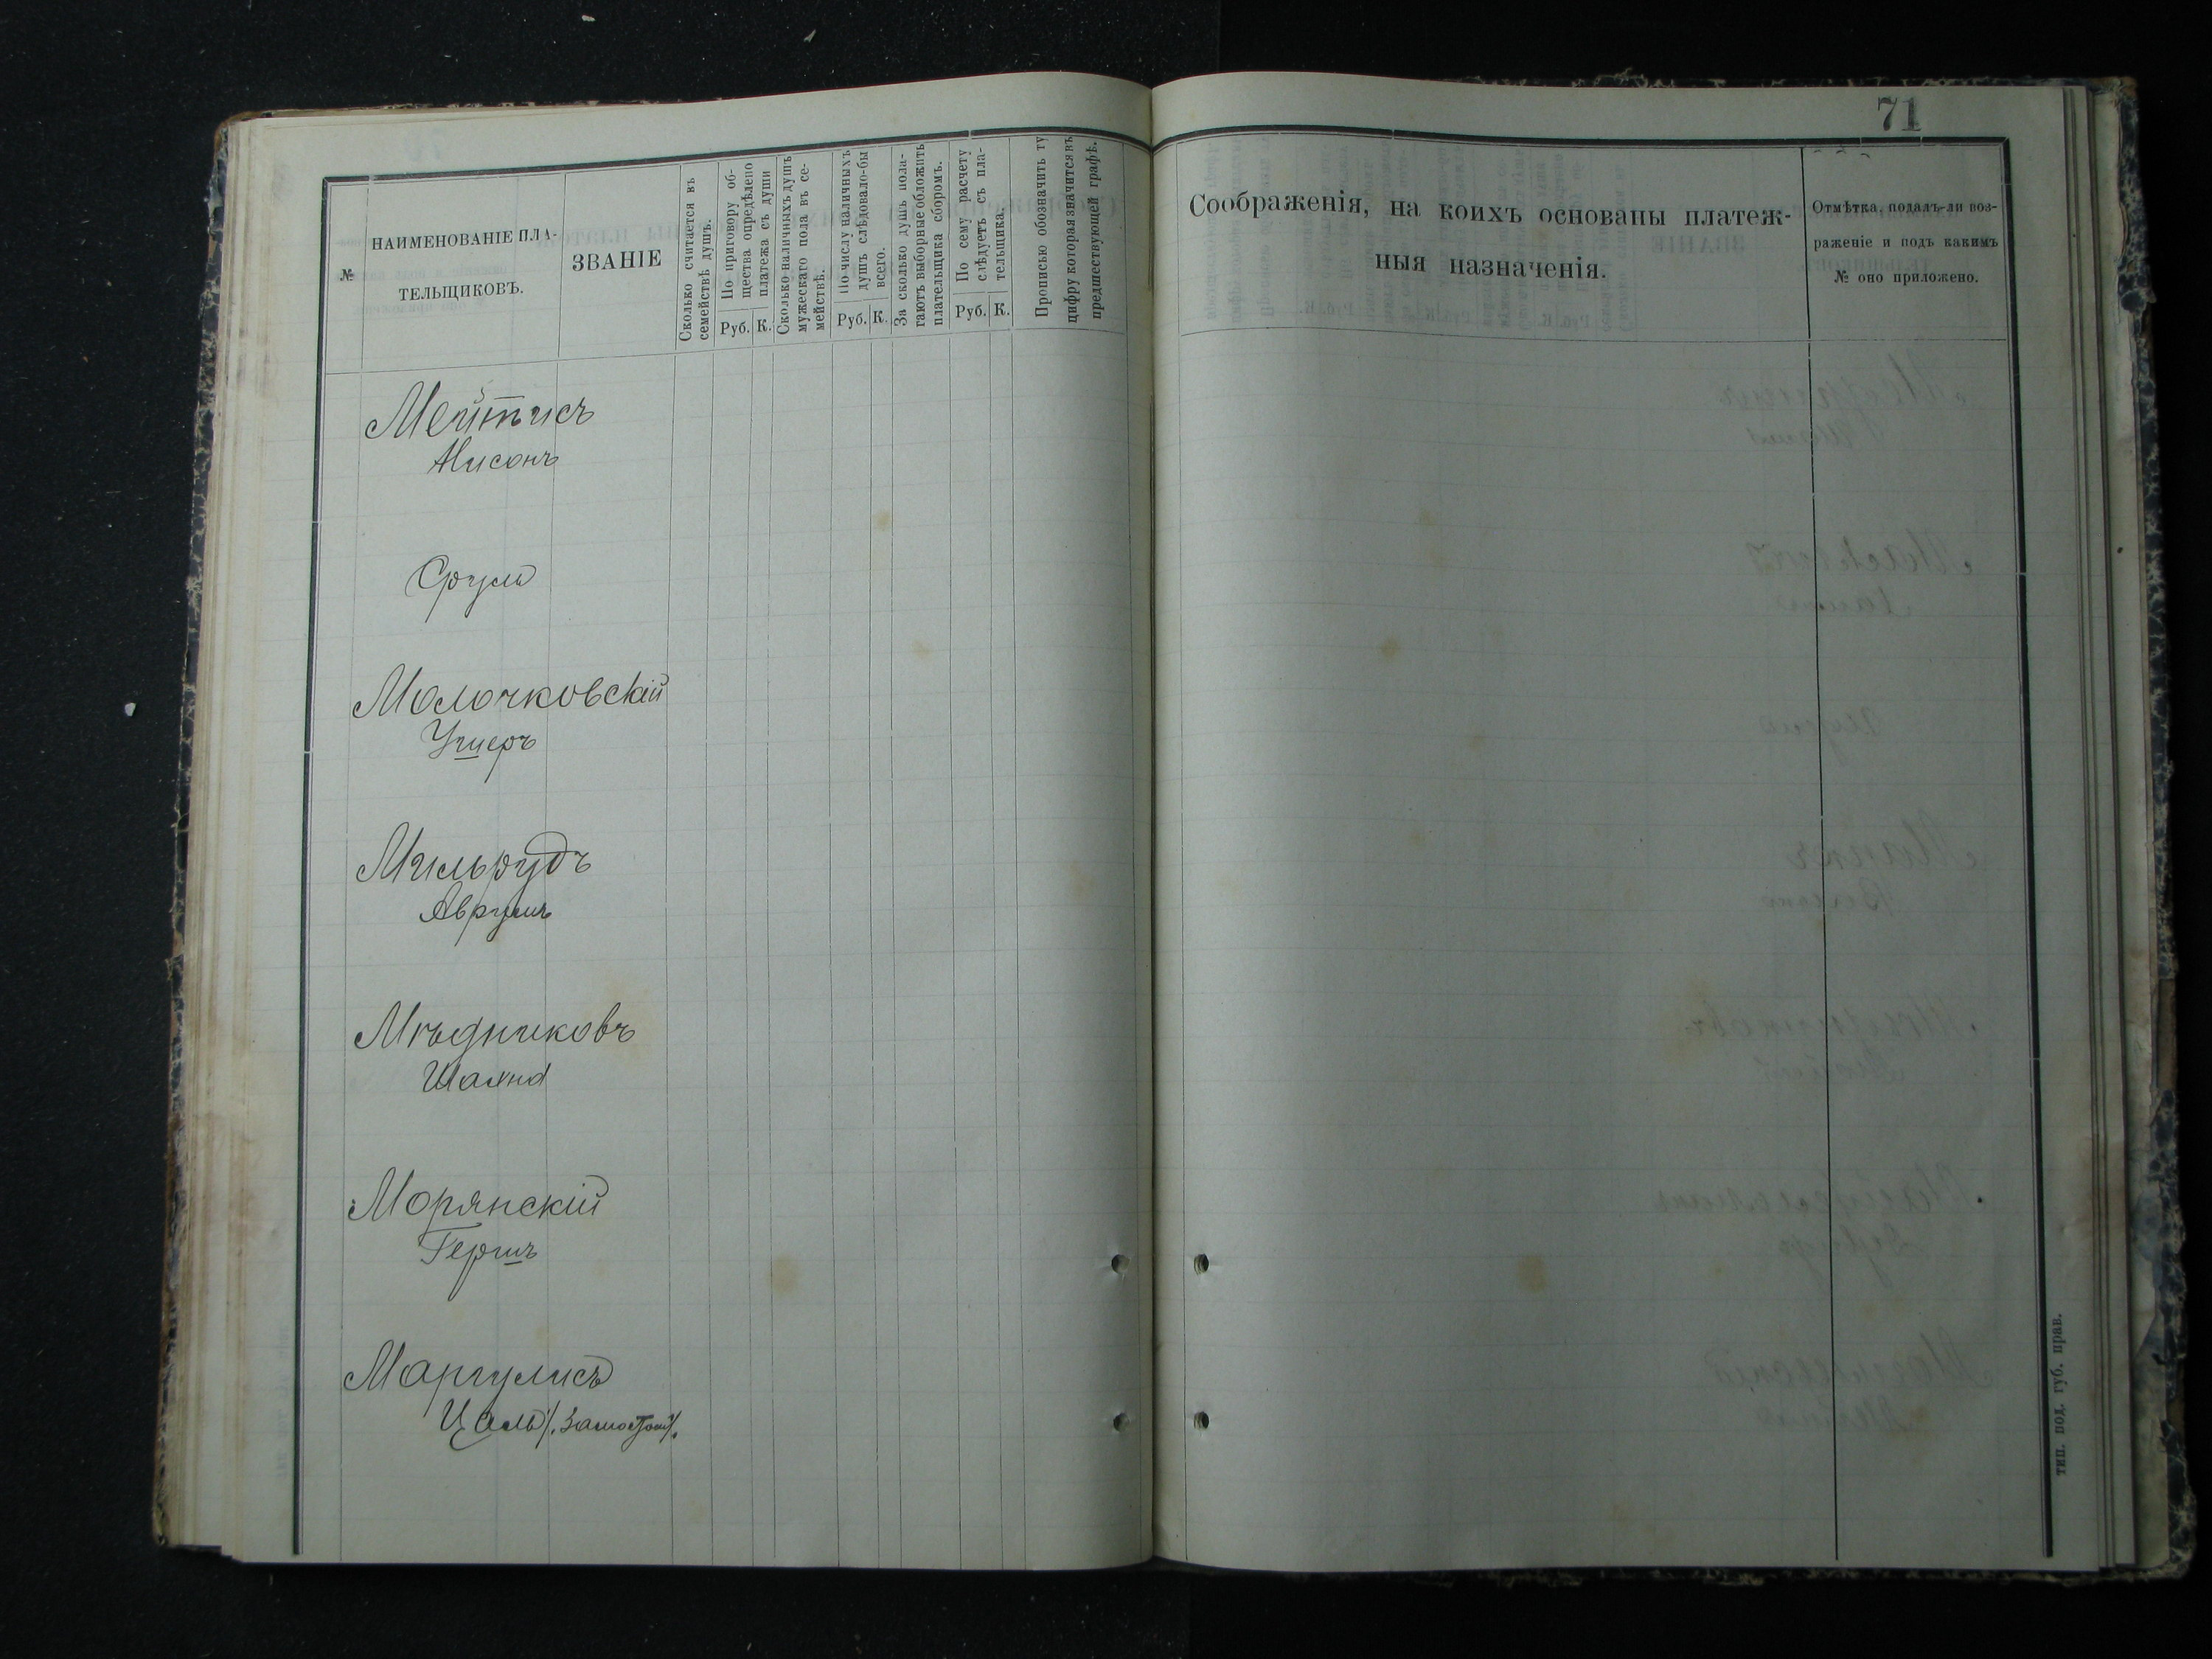 71
№
НАИМЕНОВАНІЕ ПЛА-
ТЕЛЬЩИКОВЪ.
ЗВАНІЕ
Сколько считается въ
семействѣ душъ.
По приговору об-
щества опредѣлено
платежа съ души
Руб. К.
Сколько наличныхъ душъ
мужескаго пола въ се-
мействѣ.
По числу наличныхъ
душъ слѣдовало-бы
всего.
Руб. К.
За сколько душъ пола-
гаютъ выборные обложить
плательщика сборомъ.
По сему расчету
слѣдуетъ съ пла-
тельщика.
Руб. К.
Прописью обозначить ту
цифру которая значится въ
предшествующей графѣ.
Соображенія, на коихъ основаны платеж-
ныя назначенія.
Отмѣтка, подалъ-ли воз-
раженіе и подъ какимъ
№ оно приложено.
Мейтисъ
Нисонъ
Сруль
Молочковскій
Ушеръ
Мильрудъ
Аврумъ
Мѣдниковъ
Шахна
Морянскій
Гершъ
Маргулисъ
Цаль
тип. под. губ. прав.